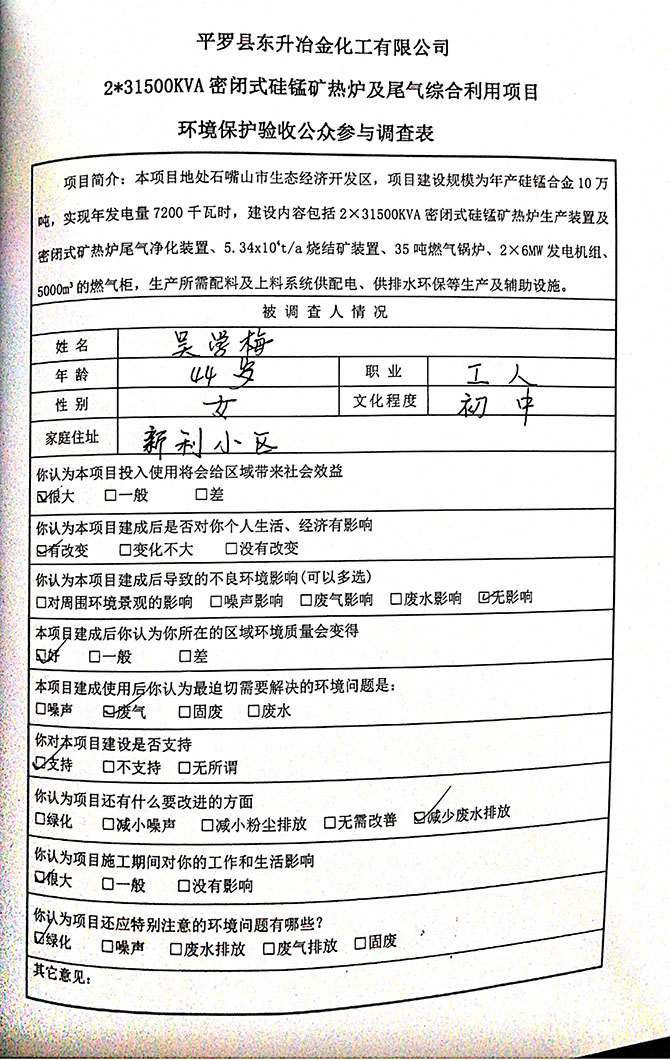 平罗县东升冶金化工有限公司
2*31500KVA密闭式硅锰矿热炉及尾气综合利用项目
环境保护验收公众参与调查表
项目简介：本项目地处石嘴山市生态经济开发区，项目建设规模为年产硅锰合金10万
吨，实现年发电量7200千瓦时，建设内容包括2×31500KVA密闭式硅锰矿热炉生产装置及
密闭式矿热炉尾气净化装置、5.34x10⁴t/a烧结矿装置、35吨燃气锅炉、2×6MW发电机组、
5000m³的燃气柜，生产所需配料及上料系统供配电、供排水环保等生产及辅助设施。
被调查人情况
姓名 吴学梅
年龄 44岁 职业 工人
性别 女 文化程度 初中
家庭住址 新利小区
你认为本项目投入使用将会给区域带来社会效益
☑很大 □一般 □差
你认为本项目建成后是否对你个人生活、经济有影响
☑有改变 □变化不大 □没有改变
你认为本项目建成后导致的不良环境影响(可以多选)
□对周围环境景观的影响 □噪声影响 □废气影响 □废水影响 ☑无影响
本项目建成后你认为你所在的区域环境质量会变得
☑好 □一般 □差
本项目建成使用后你认为最迫切需要解决的环境问题是：
□噪声 ☑废气 □固废 □废水
你对本项目建设是否支持
☑支持 □不支持 □无所谓
你认为项目还有什么要改进的方面
□绿化 □减小噪声 □减小粉尘排放 □无需改善 ☑减少废水排放
你认为项目施工期间对你的工作和生活影响
☑很大 □一般 □没有影响
你认为项目还应特别注意的环境问题有哪些？
☑绿化 □噪声 □废水排放 □废气排放 □固废
其它意见：